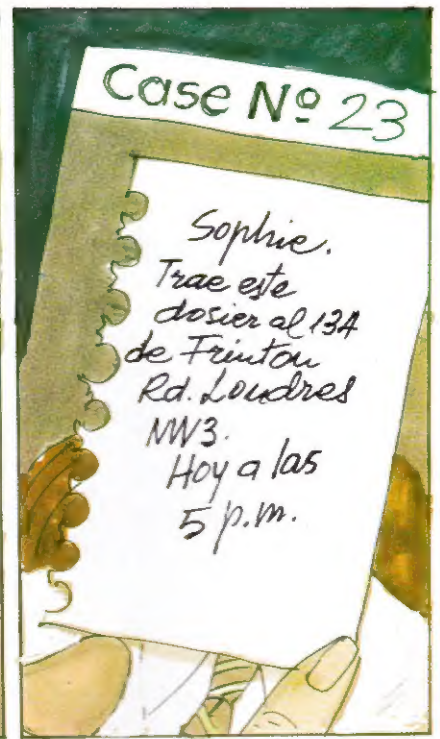 Case Nº 23
Sophie.
Trae este
dosier al 13A
de Frinton
Rd. Londres
NW3.
Hoy a las
5 p.m.